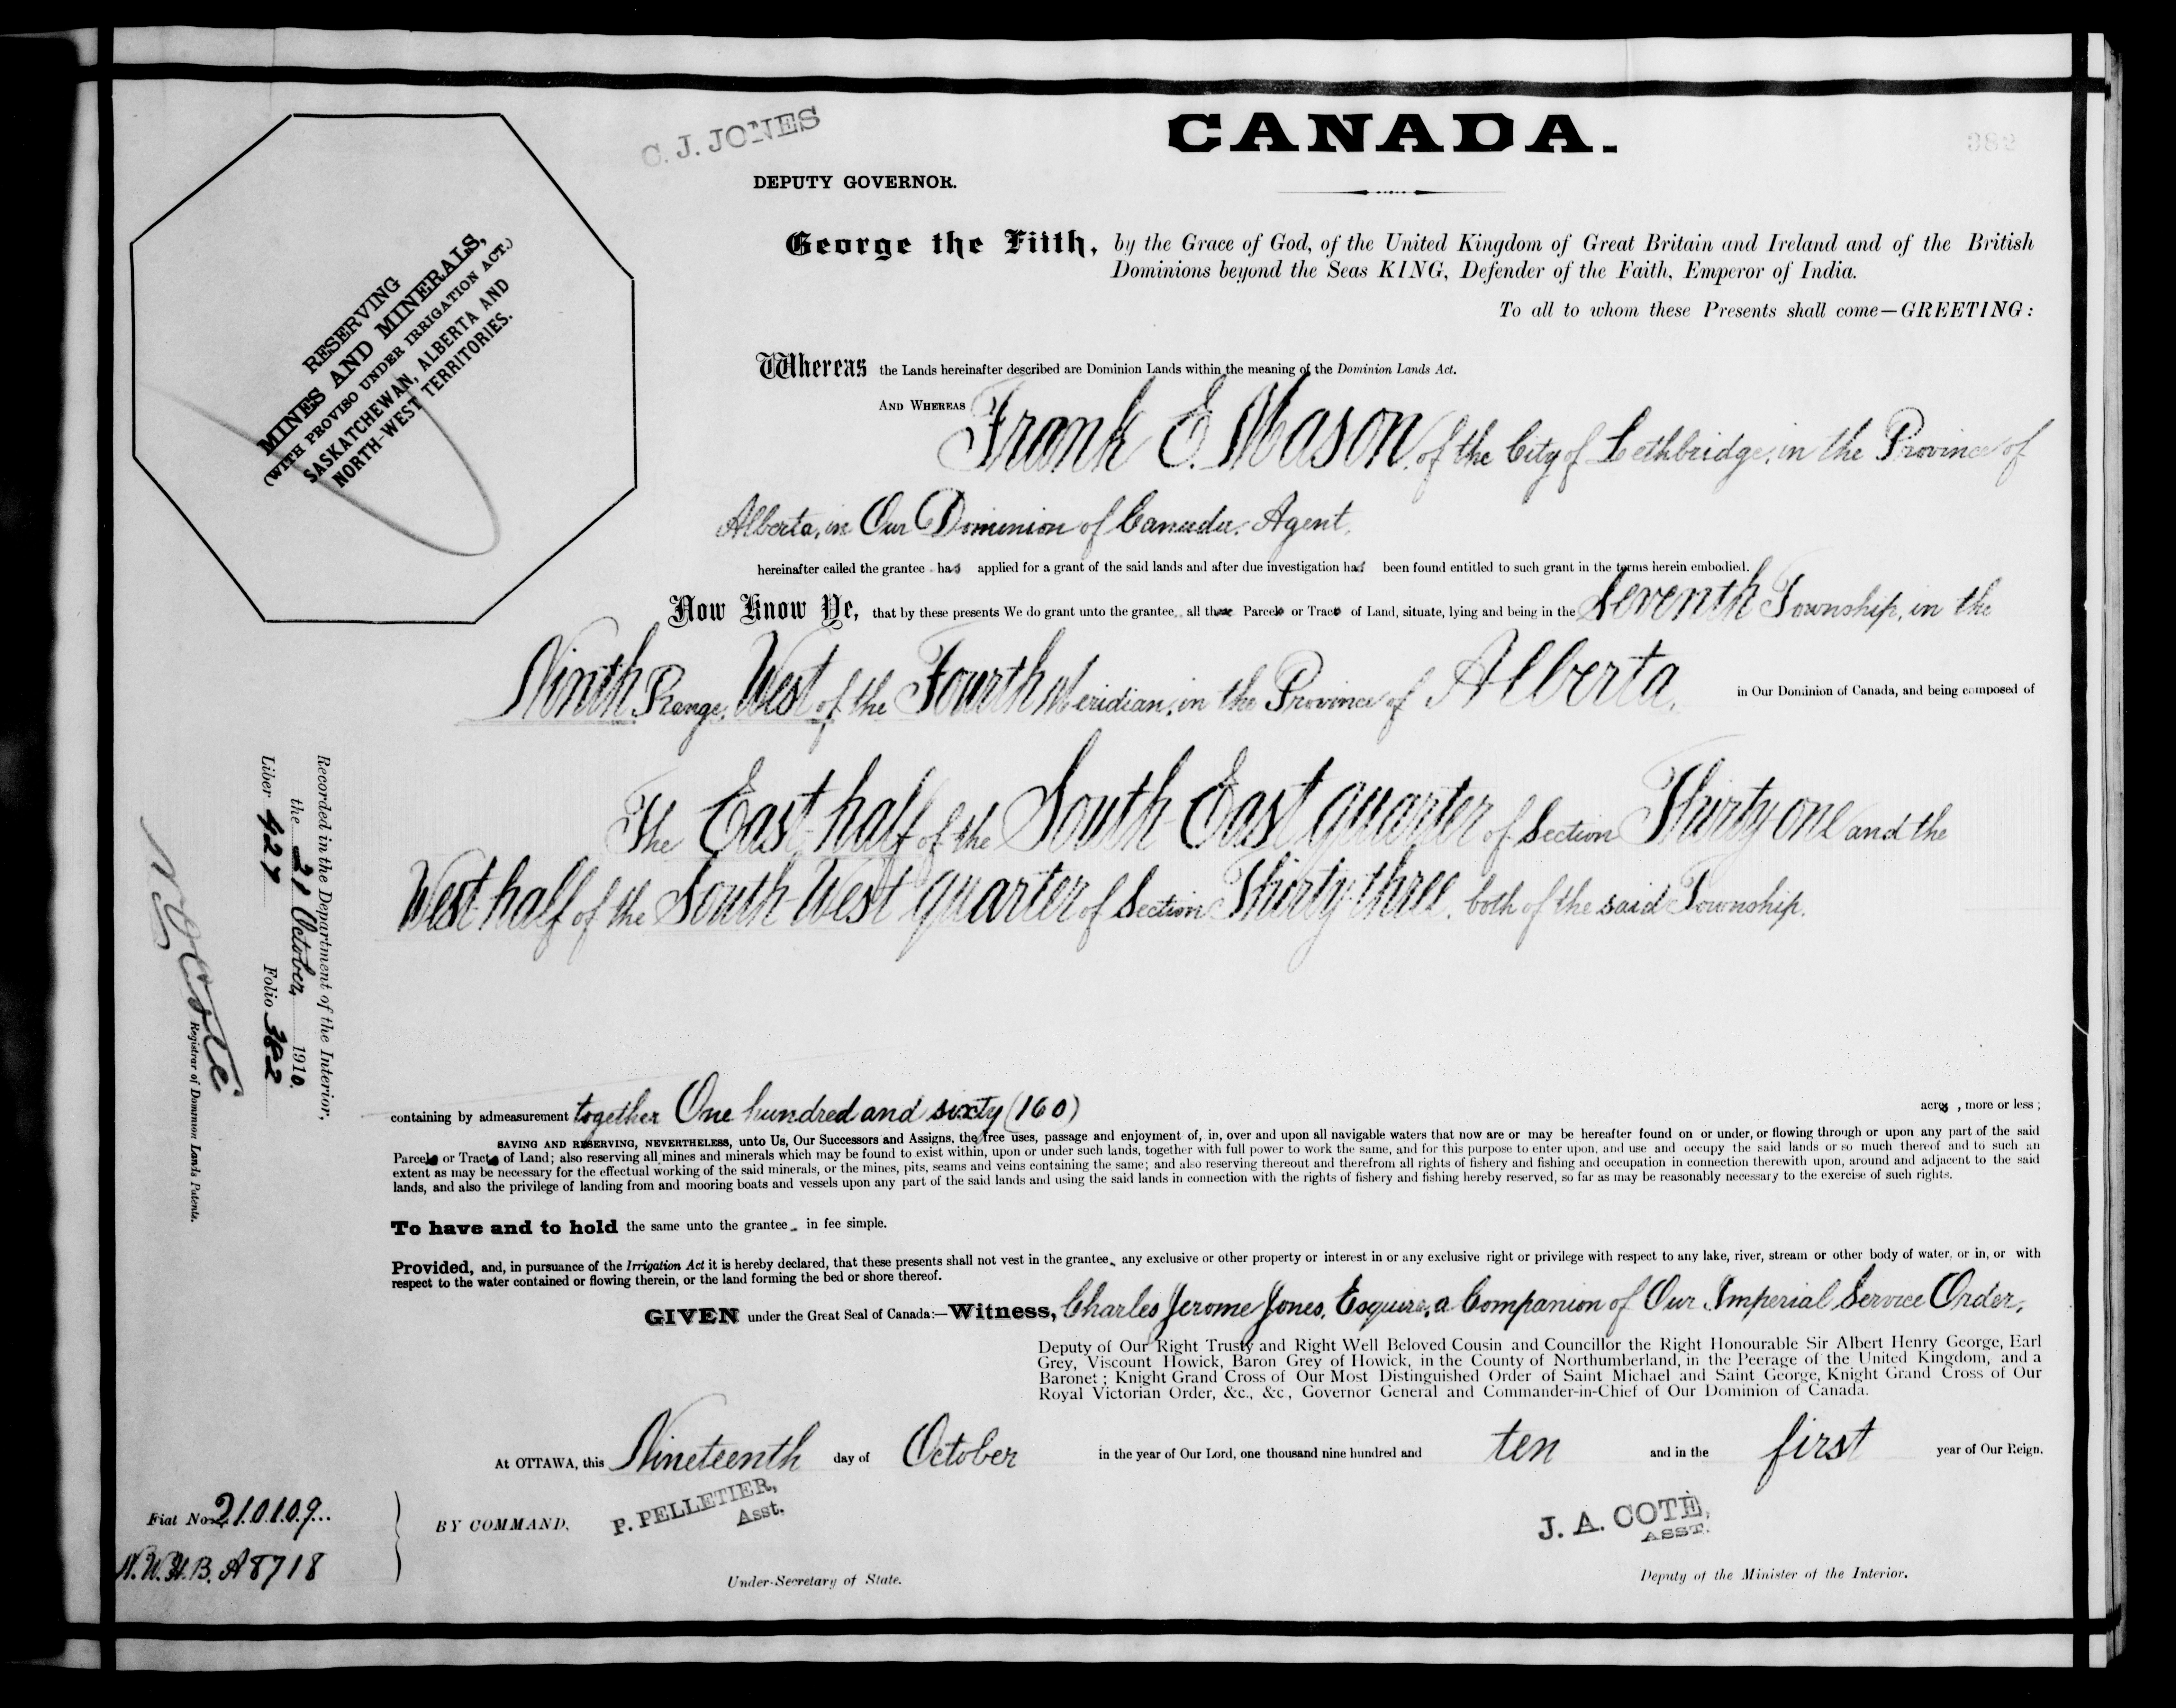 C. J. JONES
CANADA.
382
DEPUTY GOVERNOR.
RESERVING
MINES AND MINERALS,
(WITH PROVISO UNDER IRRIGATION ACT.)
SASKATCHEWAN, ALBERTA AND
NORTH-WEST TERRITORIES.
George the Fifth, by the Grace of God, of the United Kingdom of Great Britain and Ireland and of the British
Dominions beyond the Seas KING, Defender of the Faith, Emperor of India.
To all to whom these Presents shall come—GREETING:
Whereas the Lands hereinafter described are Dominion Lands within the meaning of the Dominion Lands Act.
AND WHEREAS Frank E. Mason, of the City of Lethbridge, in the Province of
Alberta, in Our Dominion of Canada, Agent,
hereinafter called the grantee has applied for a grant of the said lands and after due investigation has been found entitled to such grant in the terms herein embodied.
Now Know Ye, that by these presents We do grant unto the grantee, all those Parcels or Tracts of Land, situate, lying and being in the Seventh Township, in the
Ninth Range, West of the Fourth Meridian, in the Province of Alberta, in Our Dominion of Canada, and being composed of
The East half of the South East quarter of Section Thirty one and the
West half of the South West quarter of Section Thirty-three, both of the said Township.
containing by admeasurement together One hundred and sixty (160) acres, more or less;
SAVING AND RESERVING, NEVERTHELESS, unto Us, Our Successors and Assigns, the free uses, passage and enjoyment of, in, over and upon all navigable waters that now are or may be hereafter found on or under, or flowing through or upon any part of the said
Parcels or Tracts of Land; also reserving all mines and minerals which may be found to exist within, upon or under such lands, together with full power to work the same, and for this purpose to enter upon, and use and occupy the said lands or so much thereof and to such an
extent as may be necessary for the effectual working of the said minerals, or the mines, pits, seams and veins containing the same; and also reserving thereout and therefrom all rights of fishery and fishing and occupation in connection therewith upon, around and adjacent to the said
lands, and also the privilege of landing from and mooring boats and vessels upon any part of the said lands and using the said lands in connection with the rights of fishery and fishing hereby reserved, so far as may be reasonably necessary to the exercise of such rights.
To have and to hold the same unto the grantee in fee simple.
Provided, and, in pursuance of the Irrigation Act it is hereby declared, that these presents shall not vest in the grantee, any exclusive or other property or interest in or any exclusive right or privilege with respect to any lake, river, stream or other body of water, or in, or with
respect to the water contained or flowing therein, or the land forming the bed or shore thereof.
GIVEN under the Great Seal of Canada:—Witness, Charles Jerome Jones, Esquire, a Companion of Our Imperial Service Order,
Deputy of Our Right Trusty and Right Well Beloved Cousin and Councillor the Right Honourable Sir Albert Henry George, Earl
Grey, Viscount Howick, Baron Grey of Howick, in the County of Northumberland, in the Peerage of the United Kingdom, and a
Baronet; Knight Grand Cross of Our Most Distinguished Order of Saint Michael and Saint George, Knight Grand Cross of Our
Royal Victorian Order, &c., &c., Governor General and Commander-in-Chief of Our Dominion of Canada.
At OTTAWA, this Nineteenth day of October in the year of Our Lord, one thousand nine hundred and ten and in the first year of Our Reign.
BY COMMAND,
P. PELLETIER,
Asst.
Under-Secretary of State.
J. A. COTÉ,
ASST.
Deputy of the Minister of the Interior.
Recorded in the Department of the Interior,
the 21 October, 1910.
Liber 427 Folio 382
N O Coté
Registrar of Dominion Lands Patents.
Fiat No. 210109
N.W.H.B. A8718